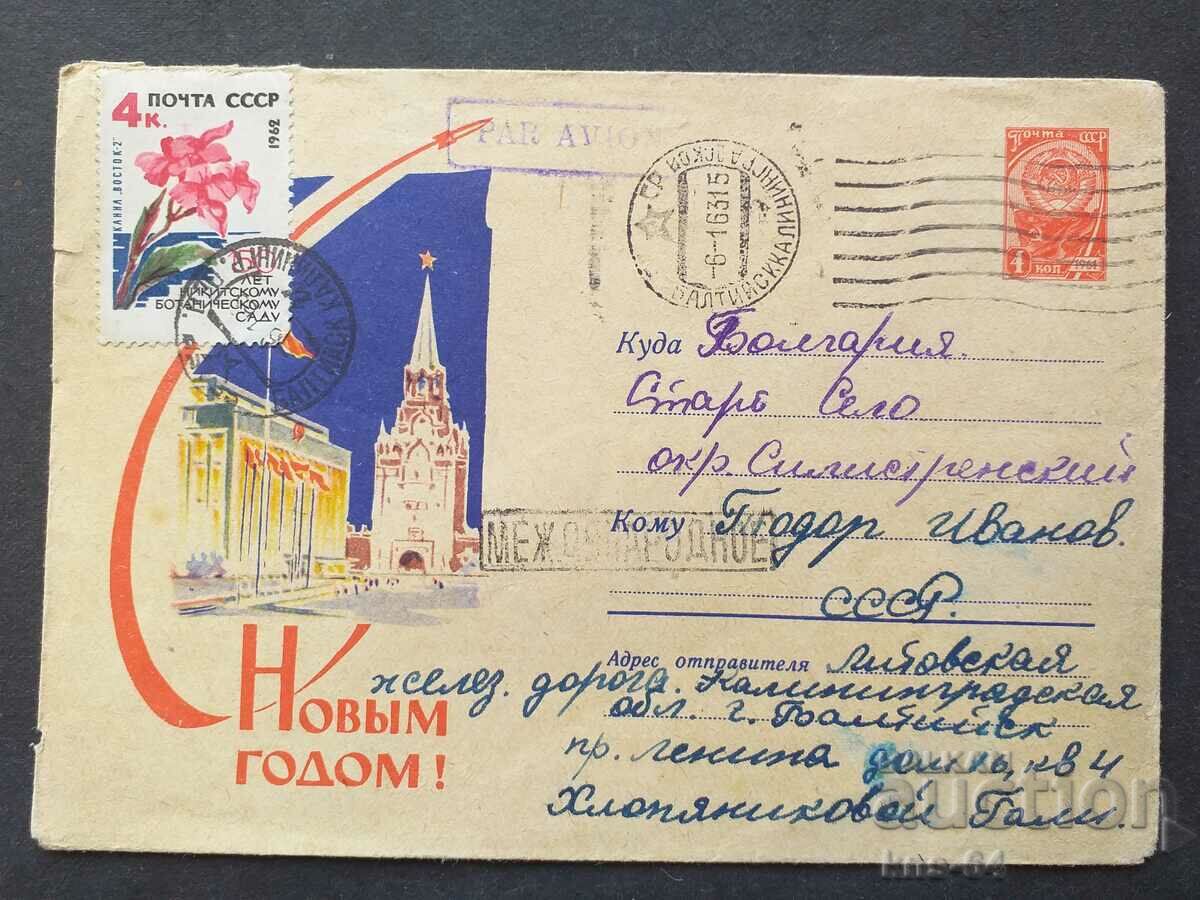 4к. ПОЧТА СССР
1962
КАННА „ВОСТОК-2"
150
ЛЕТ
НИКИТСКОМУ
БОТАНИЧЕСКОМУ
САДУ
PAR AVION
БАЛТИЙСК КАЛИНИНГРАДСКОЙ
-6-16315
Почта СССР
4 коп 1961
Куда Болгария.
Старо Село
окр Силистренский
Кому Тюдор Иванов.
МЕЖДУНАРОДНОЕ
СССР.
Адрес отправителя Литовская
желез. дорога. Калининградская
обл. г. Балтийск
пр. Ленина кв 4
Хлопяниковой Гали.
С Новым
годом!
auction
kns-64